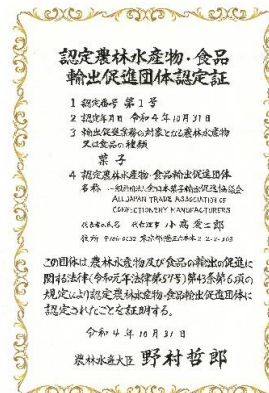 認定農林水産物・食品
輸出促進団体認定証
1 認定番号 第1号
2 認定年月日 令和4年10月31日
3 輸出促進業務の対象となる農林水産物
又は食品の種類
菓子
4 認定農林水産物・食品輸出促進団体
名称 一般社団法人全日本菓子輸出促進協議会
ALL JAPAN TRADE ASSOCIATION OF
CONFECTIONERY MANUFACTURERS
代表者の氏名 代表理事 小髙愛二郎
住所 〒106-0032 東京都港区六本木2-2-2-303
この団体は、農林水産物及び食品の輸出の促進に
関する法律(令和元年法律第57号)第43条第6項の
規定により認定農林水産物・食品輸出促進団体に
認定されたことを証明する。
令和4年10月31日
農林水産大臣 野村哲郎